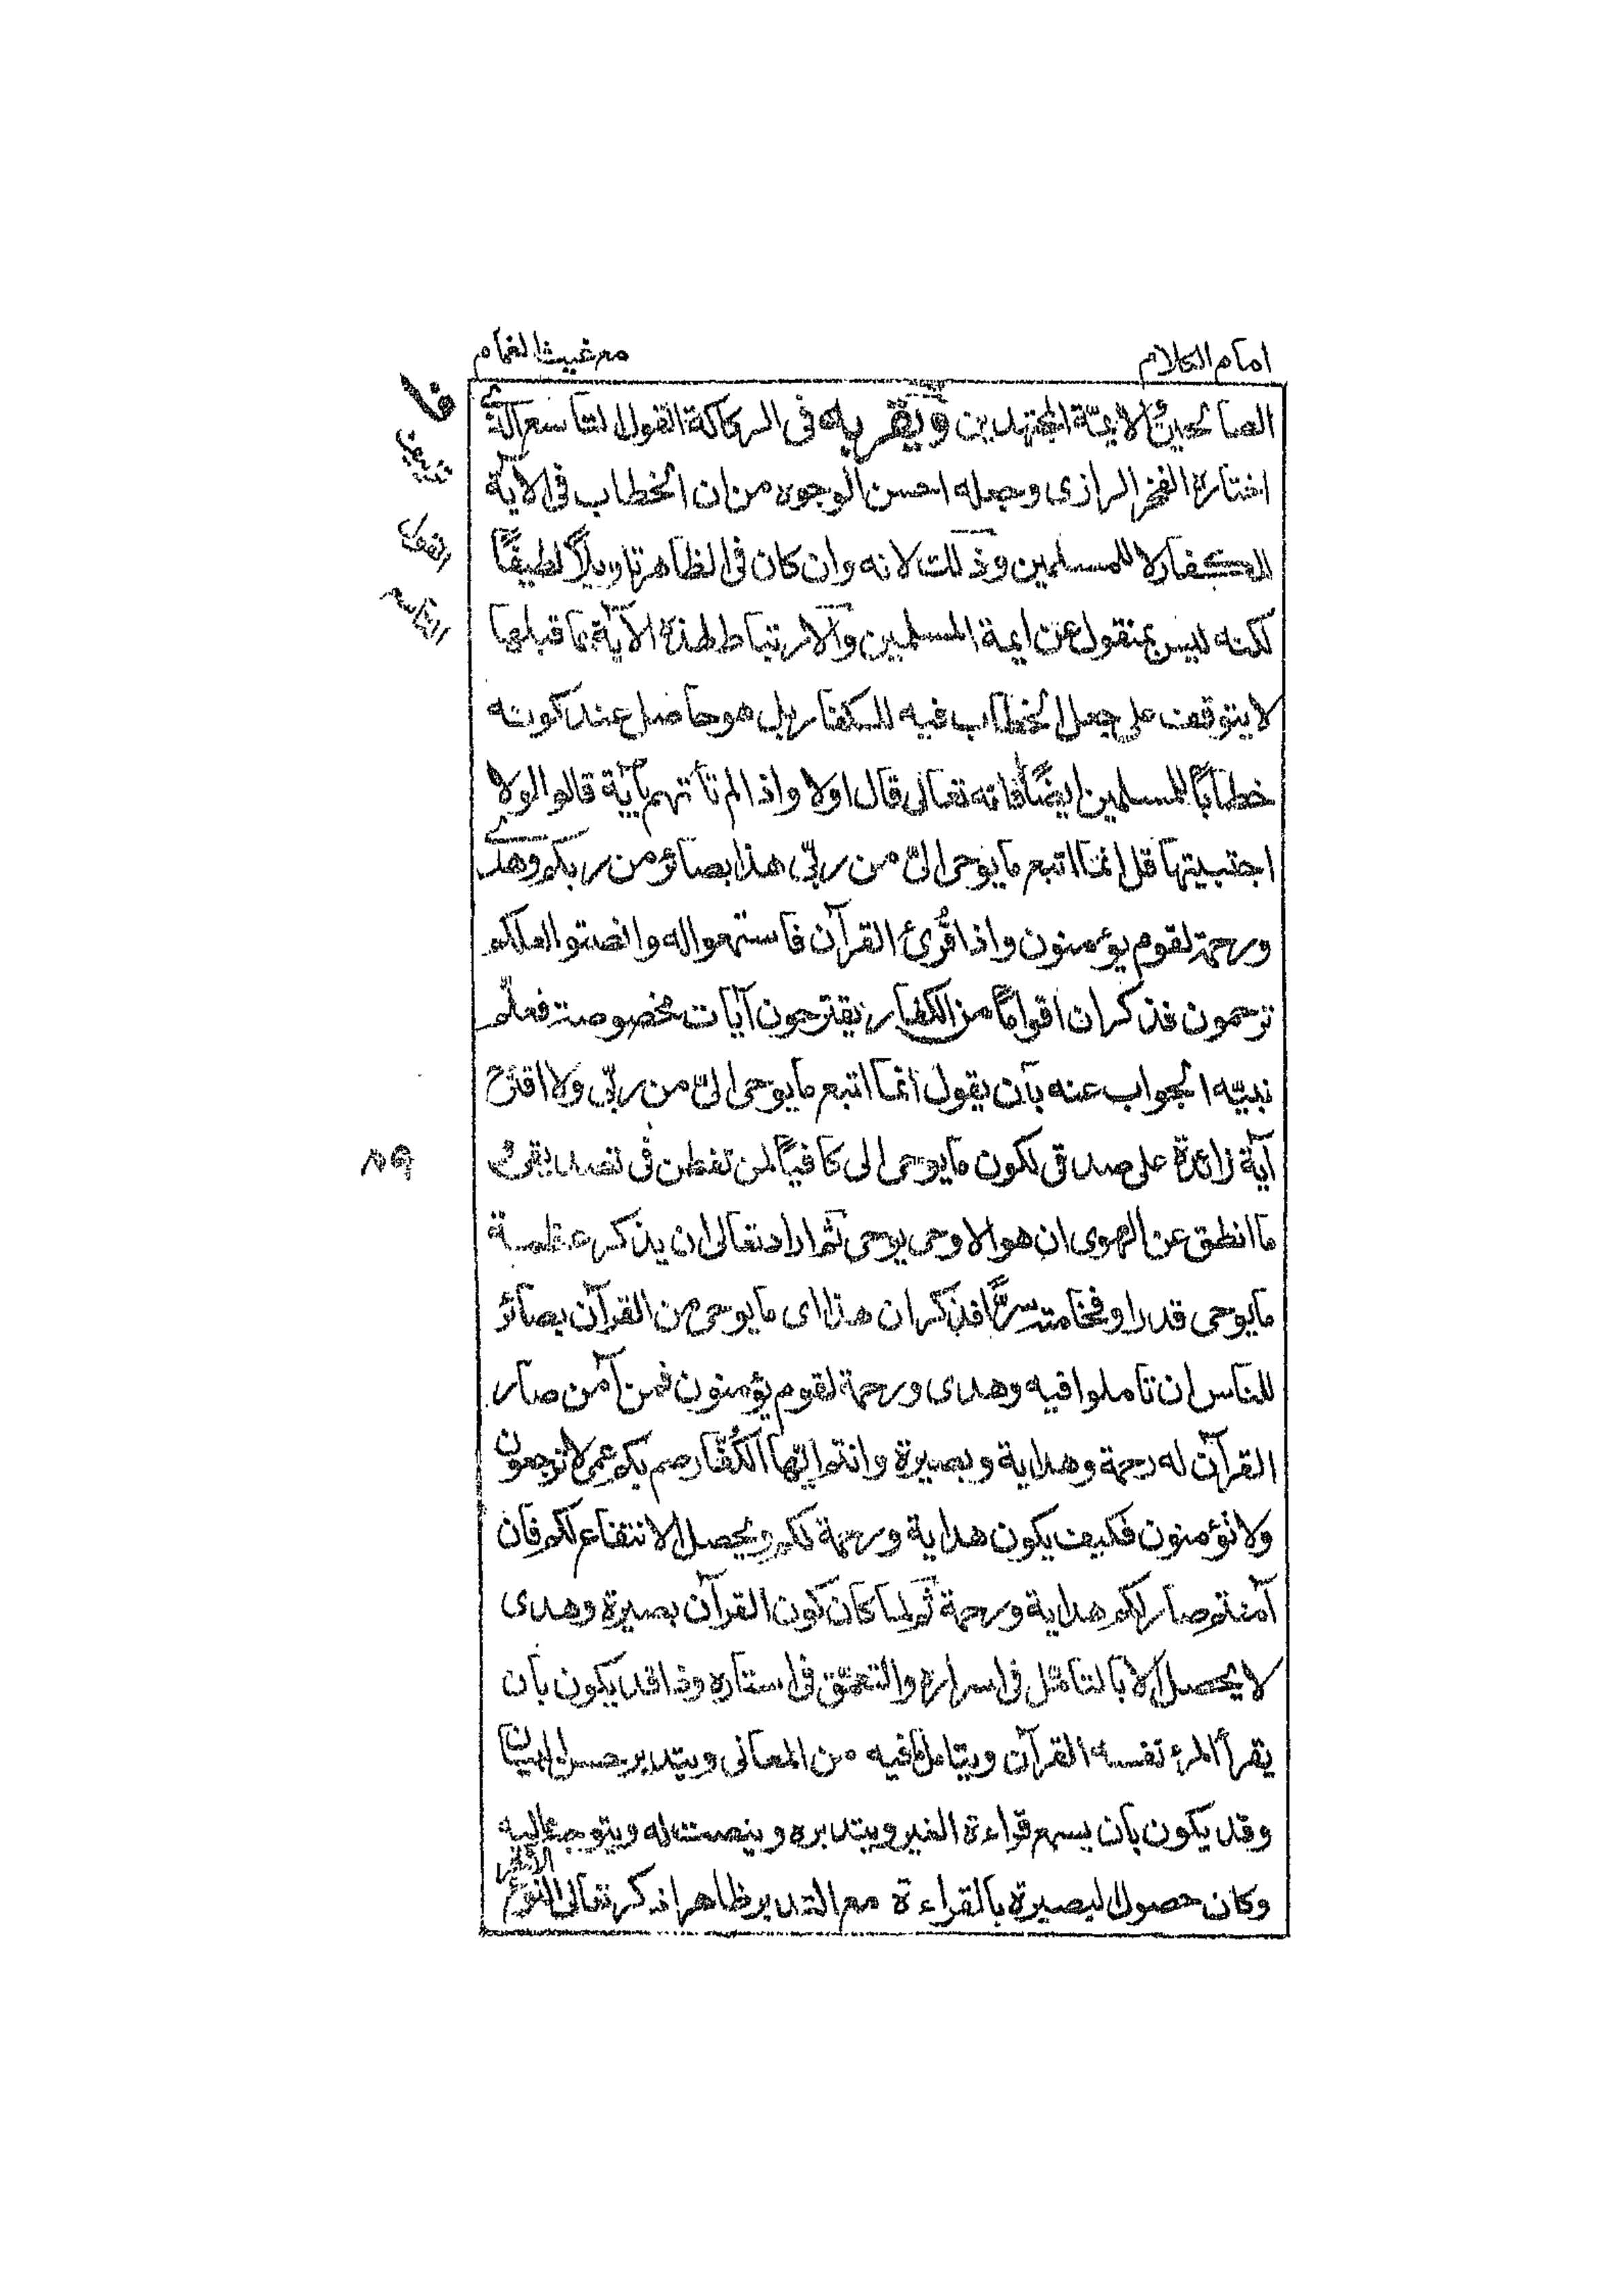 امام الكلام
مع غيث الغمام
الصالحين الايمّة المجتهدين ويقربه فى الركاكة القول التاسع الذى
اختاره الفخر الرازى وجعله احسن الوجوه من ان الخطاب فى الاية
للكفار لا للمسلمين وذلك لانه وان كان فى الظاهر تاويلاً لطيفًا
لكنه ليس بمنقول عن ايمة المسلمين والارتباط لهذه الآية بما قبلها
لا يتوقف على جعل الخطاب فيه للكفار بل هو حاصل عند كونه
خطابًا للمسلمين ايضًا فانه تعالى قال اولا واذا لم تأتهم بآية قالوا لولا
اجتبيتها قل انما اتبع ما يوحى الىّ من ربّى هذا بصائر من ربكم وهدى
ورحمة لقوم يؤمنون واذا قُرئ القرآن فاستمعوا له وانصتوا لعلكم
ترحمون فذكر ان اقوامًا من الكفار يقترحون آيات مخصوصة فعلّم
نبيّه الجواب عنه بان يقول انما اتبع ما يوحى الىّ من ربّى ولا اقترح
آية زائدة على صدقى لكون ما يوحى الى كافيًا لمن تفطن فى تصديقى
ما انطق عن الهوى ان هو الا وحى يوحى ثم اراد تعالى ان يذكر عظمة
ما يوحى قدرا وفخامته سرًّا فذكر ان هذا اى ما يوحى من القرآن بصائر
للناس ان تاملوا فيه وهدى ورحمة لقوم يؤمنون فمن آمن صار
القرآن له رحمة وهداية وبصيرة وانتم ايّها الكُفّار صم بكم عمى لا ترجعون
ولا تؤمنون فكيف يكون هداية ورحمة لكم ويحصل الانتفاع لكم فان
آمنتم صار لكم هداية ورحمة ثم لما كان كون القرآن بصيرة وهدى
لا يحصل الا بالتامّل فى اسراره والتعمّق فى استاره وذا قد يكون بان
يقرأ المرء نفسه القرآن ويتامل ما فيه من المعانى ويتدبر حسن البيان
وقد يكون بان يسمع قراءة الغير ويتدبره وينصت له ويتوجه اليه
وكان حصول البصيرة بالقراءة مع التدبر ظاهرا ذكر تعالى النوع الآخر
فا
تزييف
القول
التاسع